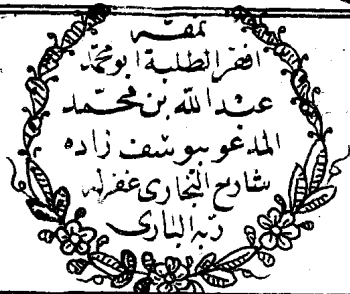 نمقه
افقر الطلبة ابو محمد
عبد الله بن محمد
المدعو بيوسف زاده
شارح البخارى غفر له
ربه البارى